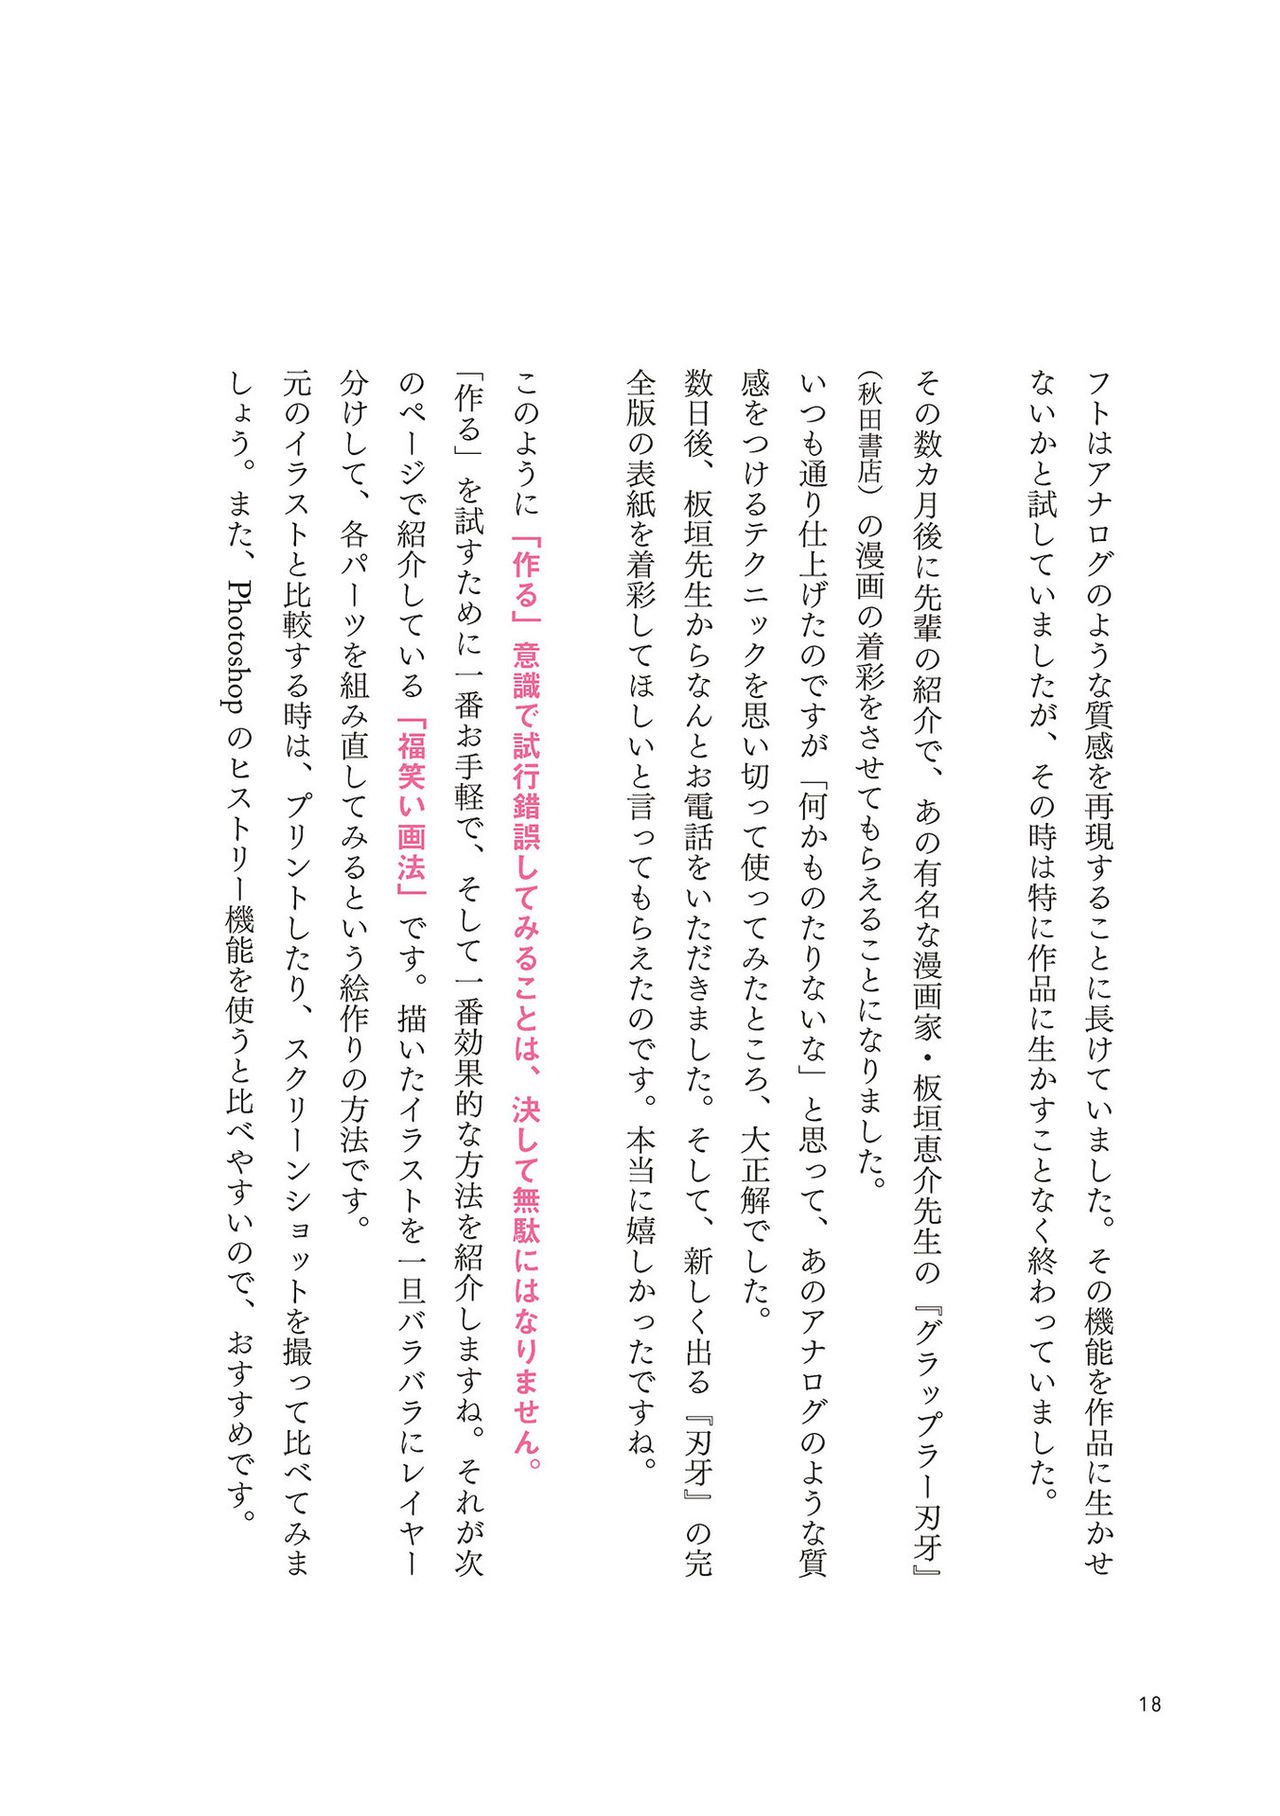 フトはアナログのような質感を再現することに長けていました。その機能を作品に生かせ
ないかと試していましたが、その時は特に作品に生かすことなく終わっていました。
その数カ月後に先輩の紹介で、あの有名な漫画家・板垣恵介先生の『グラップラー刃牙』
（秋田書店）の漫画の着彩をさせてもらえることになりました。
いつも通り仕上げたのですが「何かものたりないな」と思って、あのアナログのような質
感をつけるテクニックを思い切って使ってみたところ、大正解でした。
数日後、板垣先生からなんとお電話をいただきました。そして、新しく出る『刃牙』の完
全版の表紙を着彩してほしいと言ってもらえたのです。本当に嬉しかったですね。
このように「作る」意識で試行錯誤してみることは、決して無駄にはなりません。
「作る」を試すために一番お手軽で、そして一番効果的な方法を紹介しますね。それが次
のページで紹介している「福笑い画法」です。描いたイラストを一旦バラバラにレイヤー
分けして、各パーツを組み直してみるという絵作りの方法です。
元のイラストと比較する時は、プリントしたり、スクリーンショットを撮って比べてみま
しょう。また、Photoshopのヒストリー機能を使うと比べやすいので、おすすめです。
18